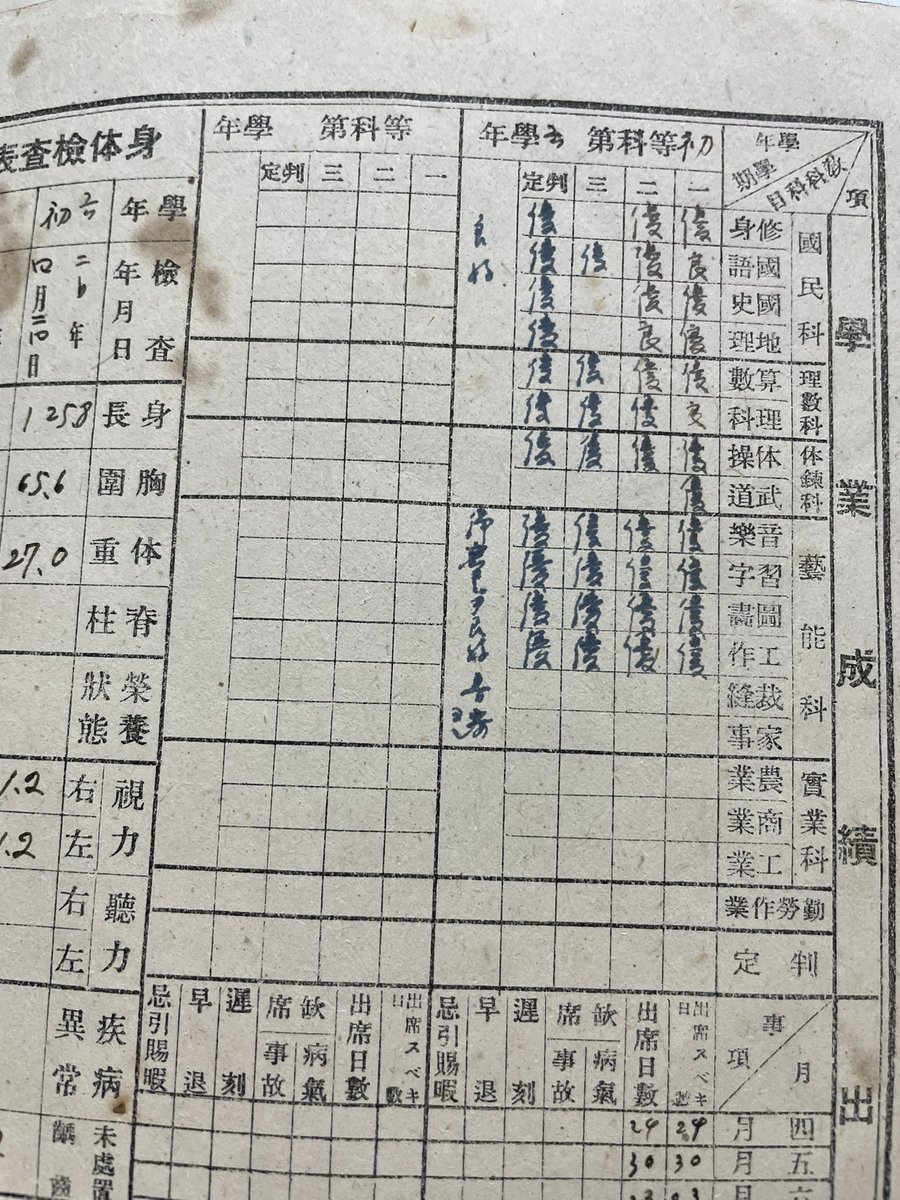 學業成績
項
學年
學期
敎科科目
初等科第六學年
一 二 三 判定
等科第 學年
一 二 三 判定
國民科
修身 優 優 優
國語 良 優 優 優
國史 優 優 優
地理 優 良 優
良好
理數科
算數 優 優 優 優
理科 良 優 優 優
体鍊科
体操 優 優 優 優
武道 優
藝能科
音樂 優 優 優 優
習字 優 優 優 優
圖畫 優 優 優 優
工作 優 優 優 優
裁縫
家事
實業科
農業
商業
工業
勤勞作業
判定
出
事項
月
出席スベキ日數 出席日數 缺席 病氣 事故 遲刻 早退 忌引賜暇
出席スベキ日數 出席日數 缺席 病氣 事故 遲刻 早退 忌引賜暇
四月 24 24
五月 30 30
六月
身体檢査表
學年 初六
檢査年月日 二〇年四月二〇日
身長 125.8
胸圍 65.6
体重 27.0
脊柱
榮養狀態
視力 右 1.2
左 1.2
聽力 右
左
疾病異常
未處置